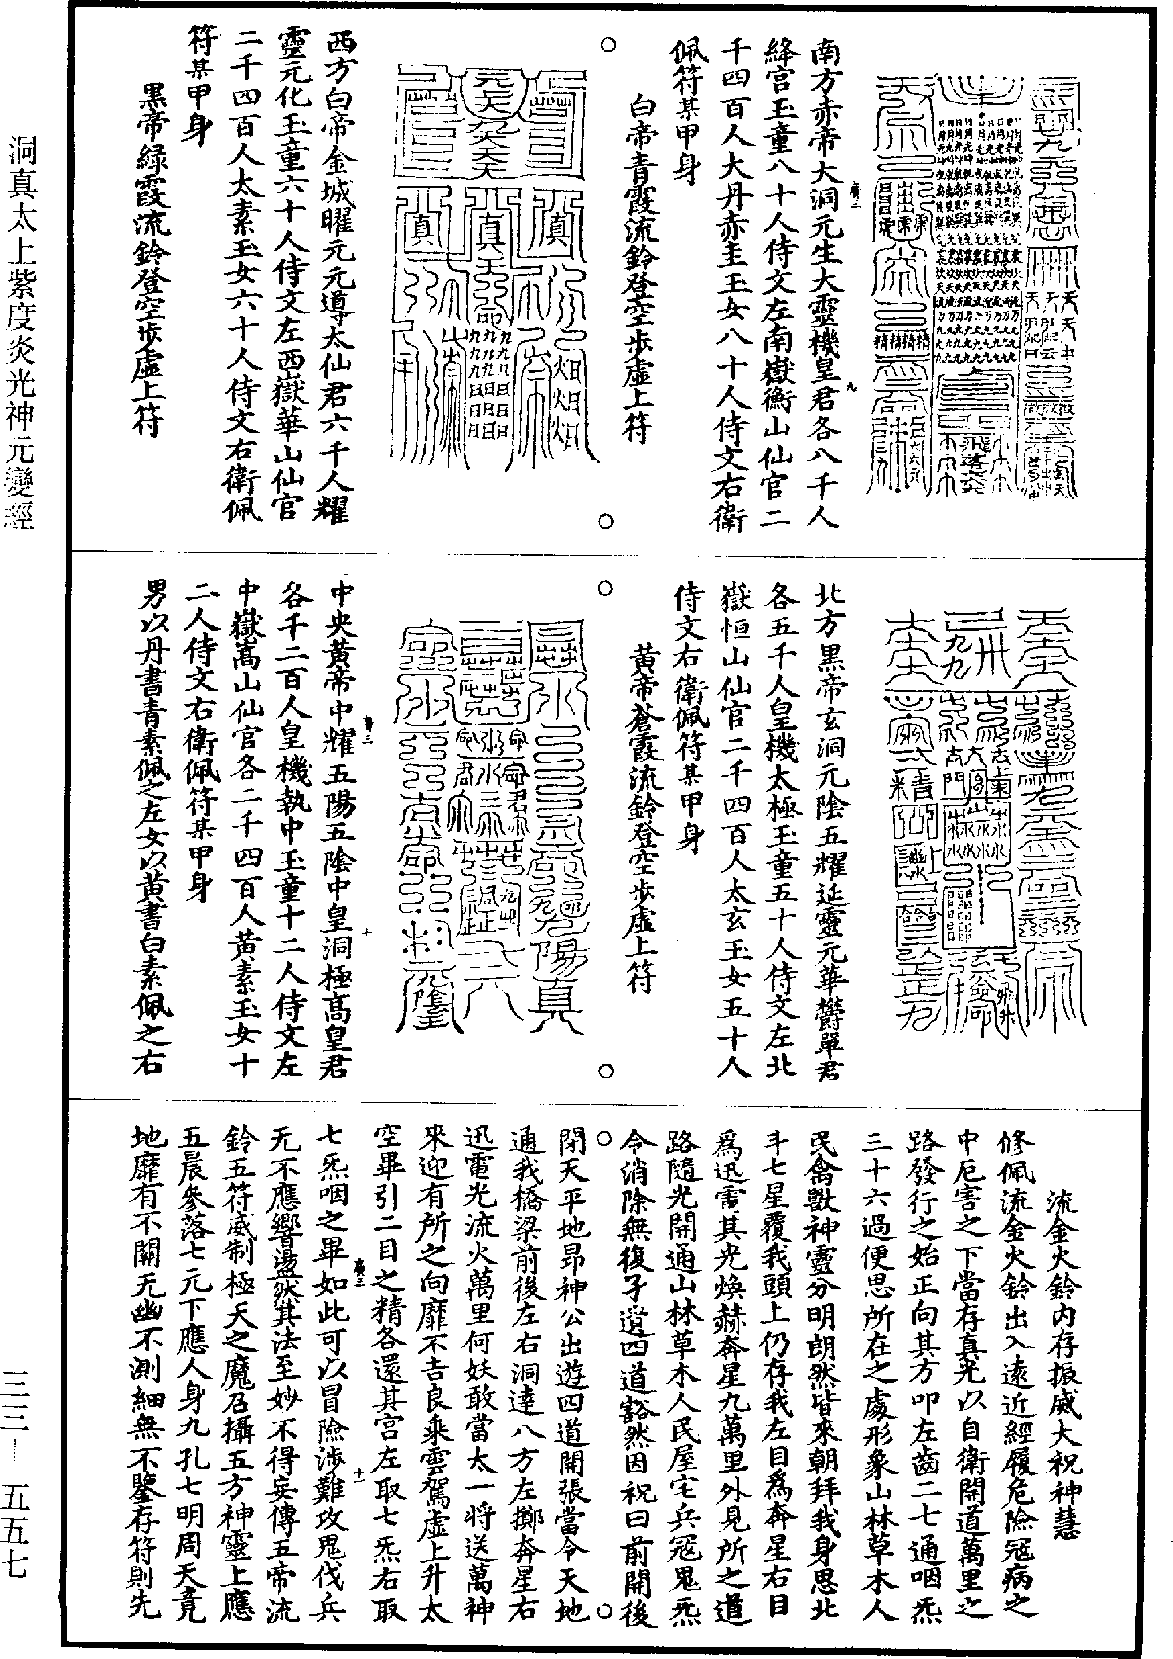 南方赤帝大洞元生大靈機皇君各八千人
絳宮玉童八十人侍文左南嶽衡山仙官二
千四百人大丹赤圭玉女八十人侍文右衛
佩符某甲身
白帝青霞流鈴登空步虛上符
西方白帝金城曜元元導太仙君六千人耀
靈元化玉童六十人侍文左西嶽華山仙官
二千四百人太素玉女六十人侍文右衛佩
符某甲身
黑帝綠霞流鈴登空步虛上符
北方黑帝玄洞元陰五耀延靈元華鬱單君
各五千人皇機太極玉童五十人侍文左北
嶽恒山仙官二千四百人太玄玉女五十人
侍文右衛佩符某甲身
黃帝蒼霞流鈴登空步虛上符
中央黃帝中耀五陽五陰中皇洞極高皇君
各千二百人皇機執中玉童十二人侍文左
中嶽嵩山仙官各二千四百人黃素玉女十
二人侍文右衛佩符某甲身
男以丹書青素佩之左女以黃書白素佩之右
流金火鈴內存振威大祝神慧
修佩流金火鈴出入遠近經履危險寇病之
中厄害之下當存真光以自衛開道萬里之
路發行之始正向其方叩左齒二七通咽炁
三十六過便思所在之處形象山林草木人
民禽獸神靈分明朗然皆來朝拜我身思北
斗七星覆我頭上仍存我左目為奔星右目
為迅電其光煥赫奔星九萬里外見所之道
路隨光開通山林草木人民屋宅兵寇鬼炁
令消除無復孑遺四道豁然因祝曰前開後
閉天平地昂神公出遊四道開張當令天地
通我橋梁前後左右洞達八方左擲奔星右
迅電光流火萬里何妖敢當太一將送萬神
來迎有所之向靡不吉良乘雲駕虛上升太
空畢引二目之精各還其宮左取七炁右取
七炁咽之畢如此可以冒險涉難攻鬼伐兵
无不應響盪然其法至妙不得妄傳五帝流
鈴五符威制極天之魔召攝五方神靈上應
五晨參落七元下應人身九孔七明周天竟
地靡有不關无幽不測細無不鑒存符則先
洞真太上紫度炎光神元變經
三三—五五七